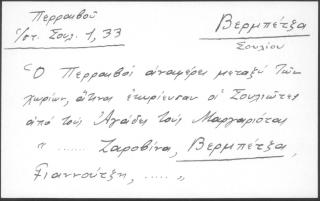 Περραιβοῦ
Ἱστ. Σουλ. 1, 33
Βερμπέτζα
Σουλίου
Ὁ Περραιβός ἀναφέρει μεταξύ τῶν
χωρίων, ἅτινα ἐκυρίευσαν οἱ Σουλιῶτες
ἀπό τούς Ἀγάδες τούς Μαργαριῶται
" ....... Ζαροβίνα, Βερμπέτζα,
Γιαννούτζη, ..... "